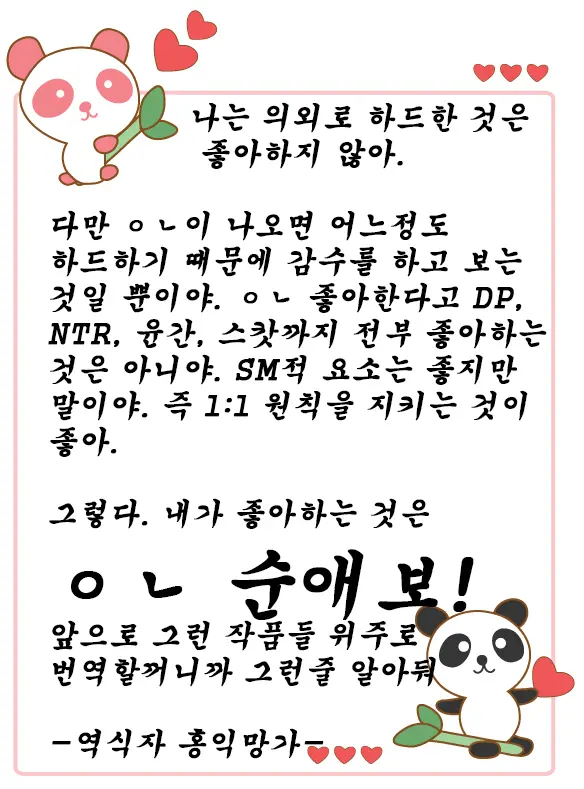 나는 의외로 하드한 것은
좋아하지 않아.
다만 ㅇㄴ이 나오면 어느정도
하드하기 때문에 감수를 하고 보는
것일 뿐이야. ㅇㄴ 좋아한다고 DP,
NTR, 윤간, 스캇까지 전부 좋아하는
것은 아니야. SM적 요소는 좋지만
말이야. 즉 1:1 원칙을 지키는 것이
좋아.
그렇다. 내가 좋아하는 것은
ㅇㄴ 순애보!
앞으로 그런 작품들 위주로
번역할꺼니까 그런줄 알아둬
-역식자 홍익망가-